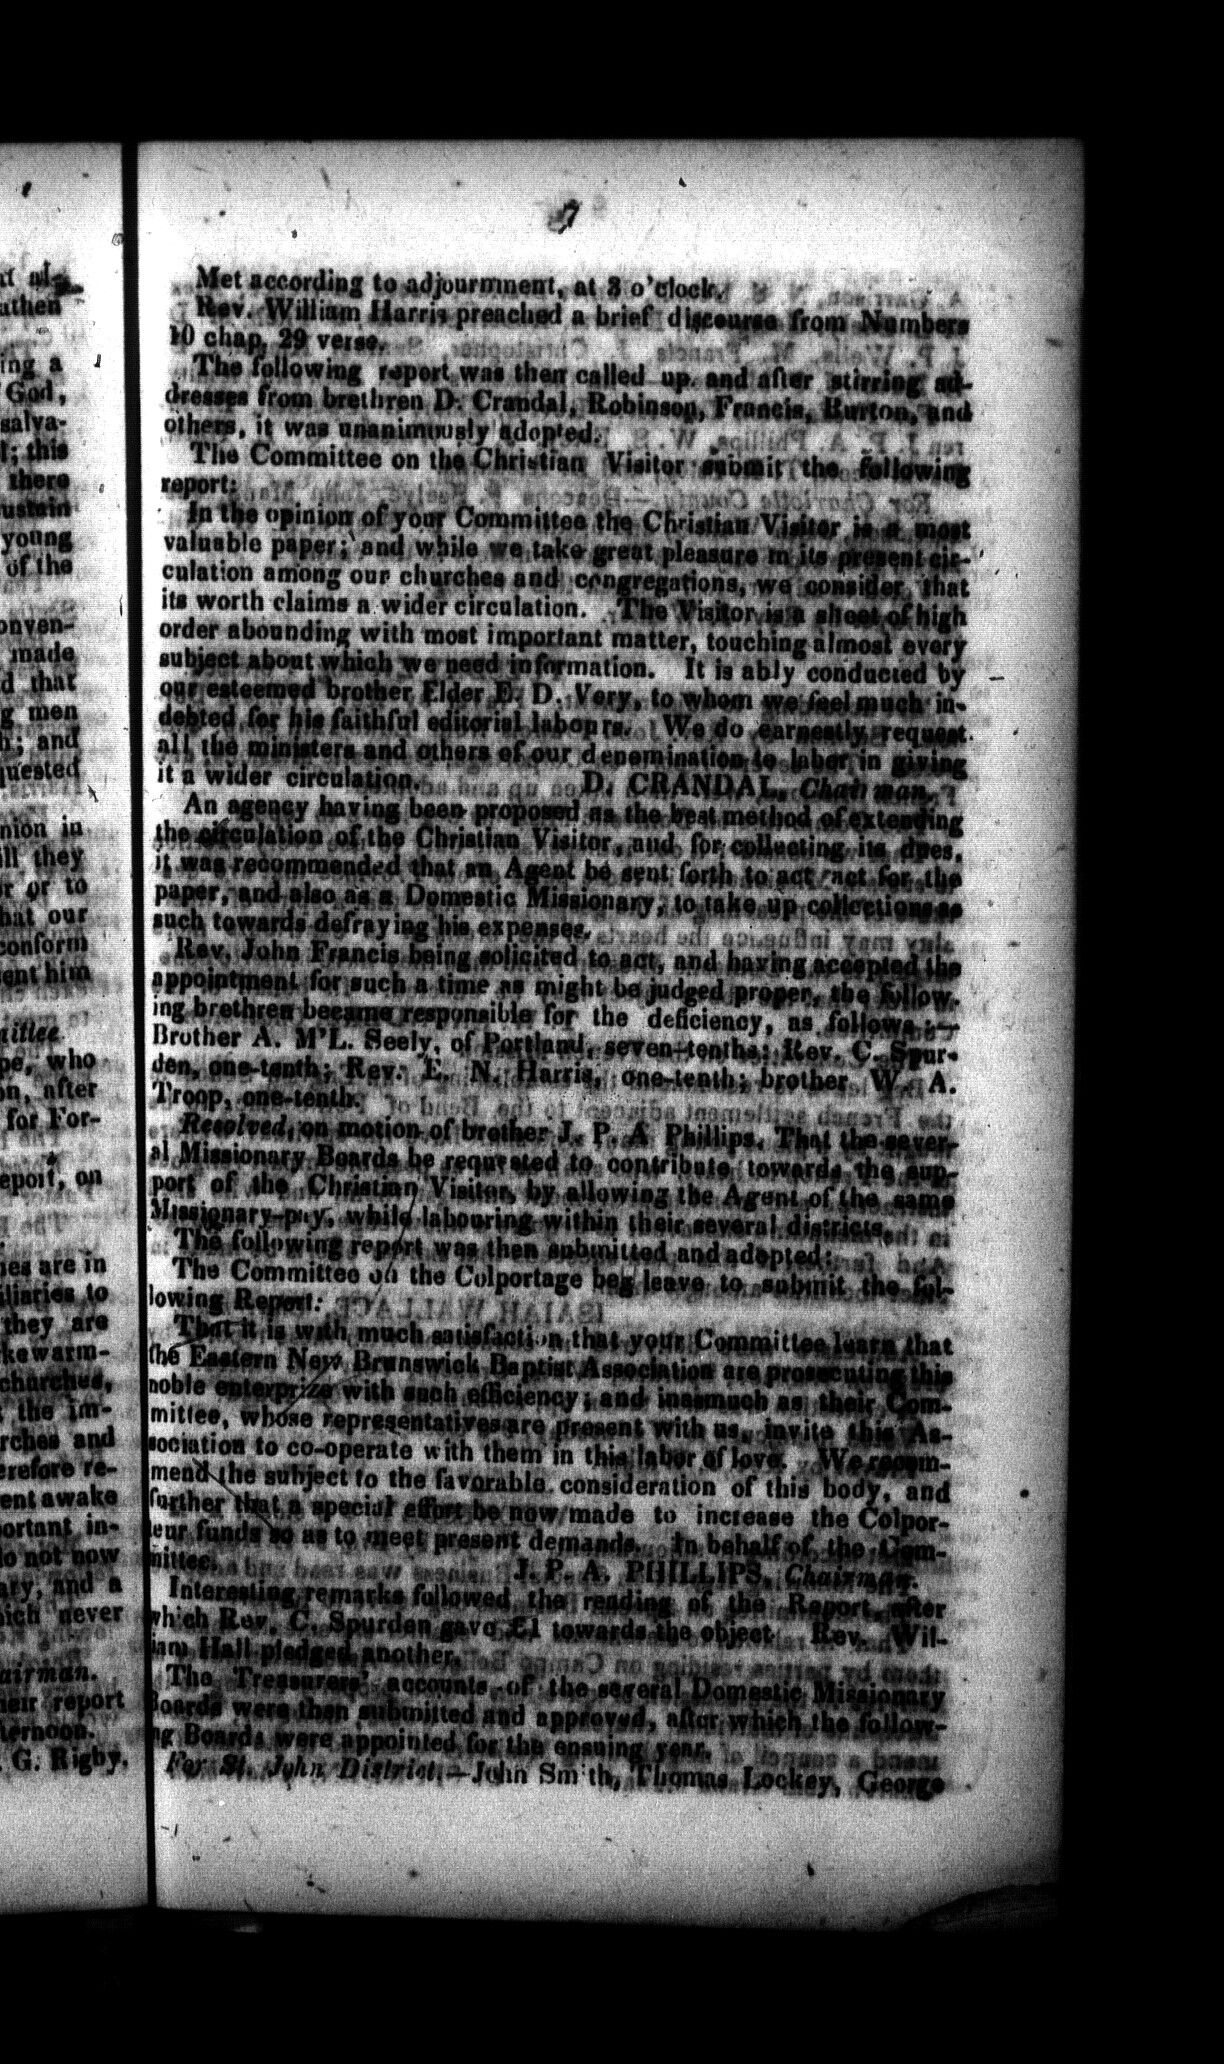 7
Met according to adjourmnent, at 3 o'clock.
Rev. William Harris preached a brief discourse from Numbers
10 chap, 29 verse.
The following report was then called up, and after stirring ad-
dresses from brethren D. Crandal, Robinson, Francis, Burton, and
others, it was unanimously adopted.
The Committee on the Christian Visitor submit the following
report:
In the opinion of your Committee the Christian Visitor is a most
valuable paper; and while we take great pleasure in its present cir-
culation among our churches and congregations, we consider, that
its worth claims a wider circulation. The Visitor is a sheet of high
order abounding with most important matter, touching almost every
subject about which we need information. It is ably conducted by
our esteemed brother Elder E. D. Very, to whom we feel much in-
debted for his faithful editorial labours. We do earnestly request
all the ministers and others of our denomination to labor in giving
it a wider circulation. D. CRANDAL, Chairman.
An agency having been proposed as the best method of extending
the circulation of the Christian Visitor, and for collecting its dues,
it was recommended that an Agent be sent forth to act act for the
paper, and also as a Domestic Missionary, to take up collections as
such towards defraying his expenses.
Rev. John Francis being solicited to act, and having accepted the
appointment for such a time as might be judged proper, the follow-
ing brethren became responsible for the deficiency, as follows:—
Brother A. M'L. Seely, of Portland, seven-tenths; Rev. C. Spur-
den, one-tenth; Rev. E. N. Harris, one-tenth; brother W. A.
Troop, one-tenth.
Resolved, on motion of brother J. P. A Phillips, That the sever-
al Missionary Boards be requested to contribute towards the sup-
port of the Christian Visitor, by allowing the Agent of the same
Missionary-pay, while labouring within their several districts.
The following report was then submitted and adopted:
The Committee on the Colportage beg leave to submit the fol-
lowing Report:
That it is with much satisfaction that your Committee learn that
the Eastern New Brunswick Baptist Association are prosecuting this
noble enterprize with such efficiency; and inasmuch as their Com-
mittee, whose representatives are present with us, invite this As-
sociation to co-operate with them in this labor of love. We recom-
mend the subject to the favorable consideration of this body, and
further that a special effort be now made to increase the Colpor-
teur funds so as to meet present demands. In behalf of the Com-
mittee. J. P. A. PHILLIPS, Chairman.
Interesting remarks followed the reading of the Report, after
which Rev. C. Spurden gave £1 towards the object Rev. Wil-
liam Hall pledged another.
The Treasurers' accounts of the several Domestic Missionary
Boards were then submitted and approved, after which the follow-
ng Boards were appointed for the ensuing year.
For St. John District.—John Smith, Thomas Lockey, George